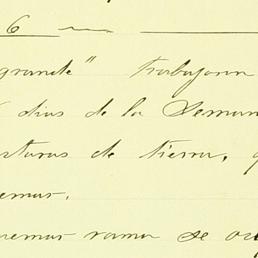 6
grande" trabajan
dias de la Seman
turas de tierra,
remas.
remas rama se